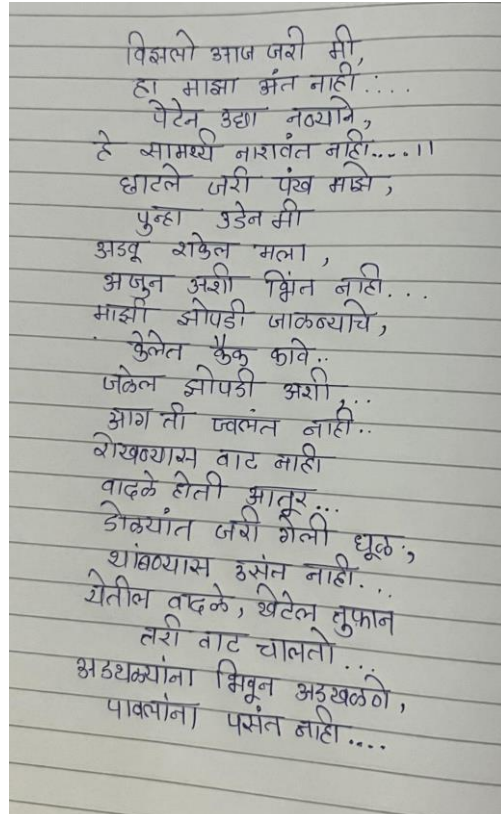 विझलो आज जरी मी,
हा माझा अंत नाही....
पेटेन उद्या नव्याने,
हे सामर्थ्य नाशवंत नाही....।।
छाटले जरी पंख माझे,
पुन्हा उडेन मी
अडवू शकेल मला,
अजुन अशी भिंत नाही...
माझी झोपडी जाळन्याचे,
केलेत कैक कावे..
जळेल झोपडी अशी,...
आग ती ज्वलंत नाही..
रोखण्यास वाट नाही
वादळे होती आतूर...
डोळ्यांत जरी गेली धूळ,
थांबण्यास उसंत नाही...
येतील वादळे, खेटेल तुफान
तरी वाट चालतो...
अडथळ्यांना भिवून अडखळणे,
पावलांना पसंत नाही....